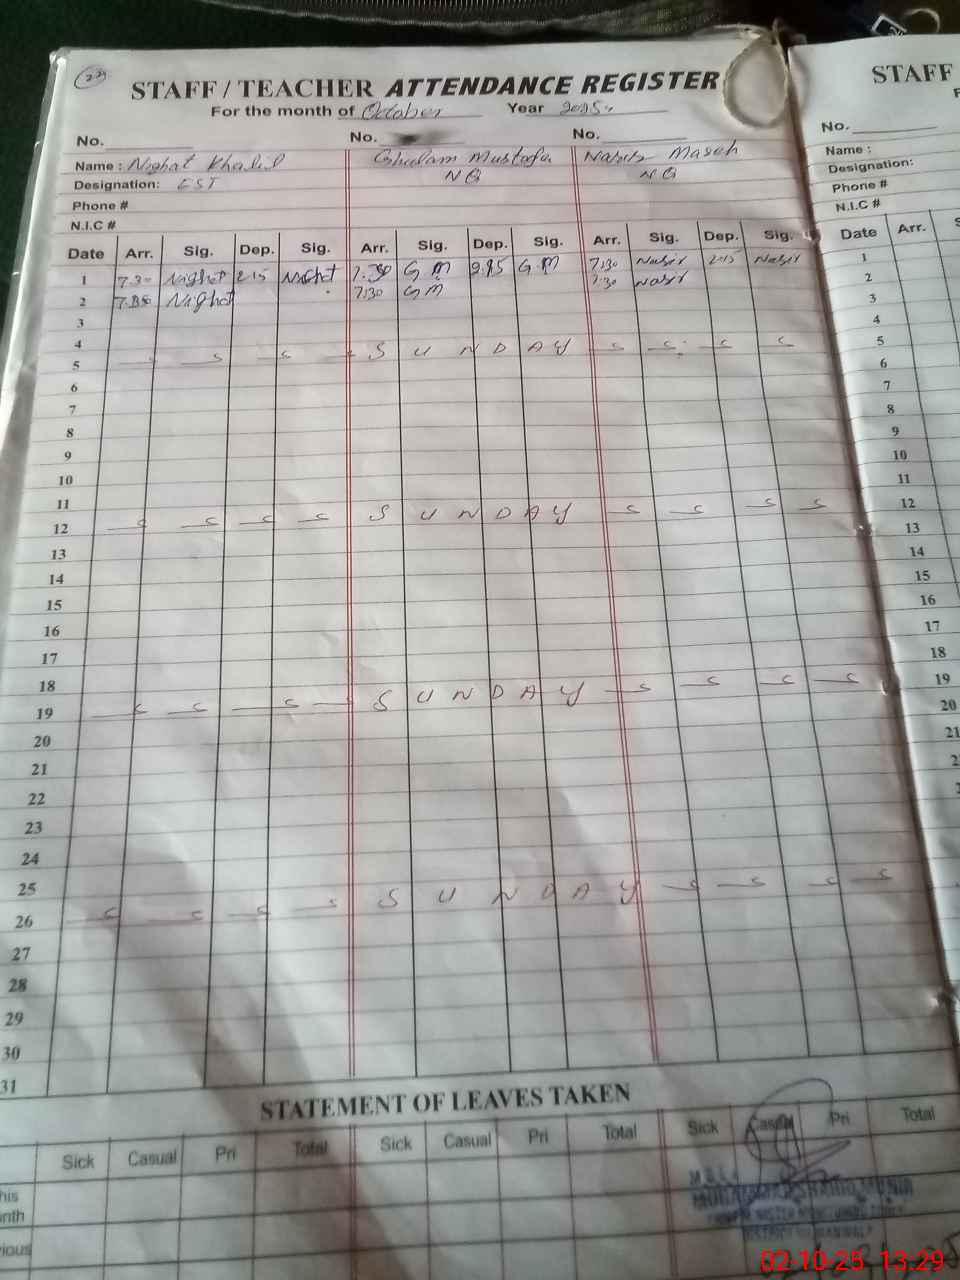 22
STAFF / TEACHER ATTENDANCE REGISTER
For the month of October Year 2025
No. No. No.
Name : Nighat Khalil Ghulam Mustafa Maseh
Designation: EST NQ NQ
Phone #
N.I.C #
Date Arr. Sig. Dep. Sig. Arr. Sig. Dep. Sig. Arr. Sig. Dep. Sig.
1 7.30 Nighat 2:15 Nighat 7.30 G M G M 7:30 Nasir 2:15 Nasir
2 7.30 Nighat 7:30 G M 7:30 Nasir
3
4
5 S U N D A Y
6
7
8
9
10
11
12 S U N D A Y
13
14
15
16
17
18
19 S U N D A Y
20
21
22
23
24
25
26 S U N D A Y
27
28
29
30
31
STATEMENT OF LEAVES TAKEN
Sick Casual Pri Total Sick Casual Pri Total Sick Casual Pri Total
his
nth
ious
STAFF
No.
Name :
Designation:
Phone #
N.I.C #
Date Arr. S
1
2
3
4
5
6
7
8
9
10
11
12
13
14
15
16
17
18
19
20
21
02-10-25 13:29